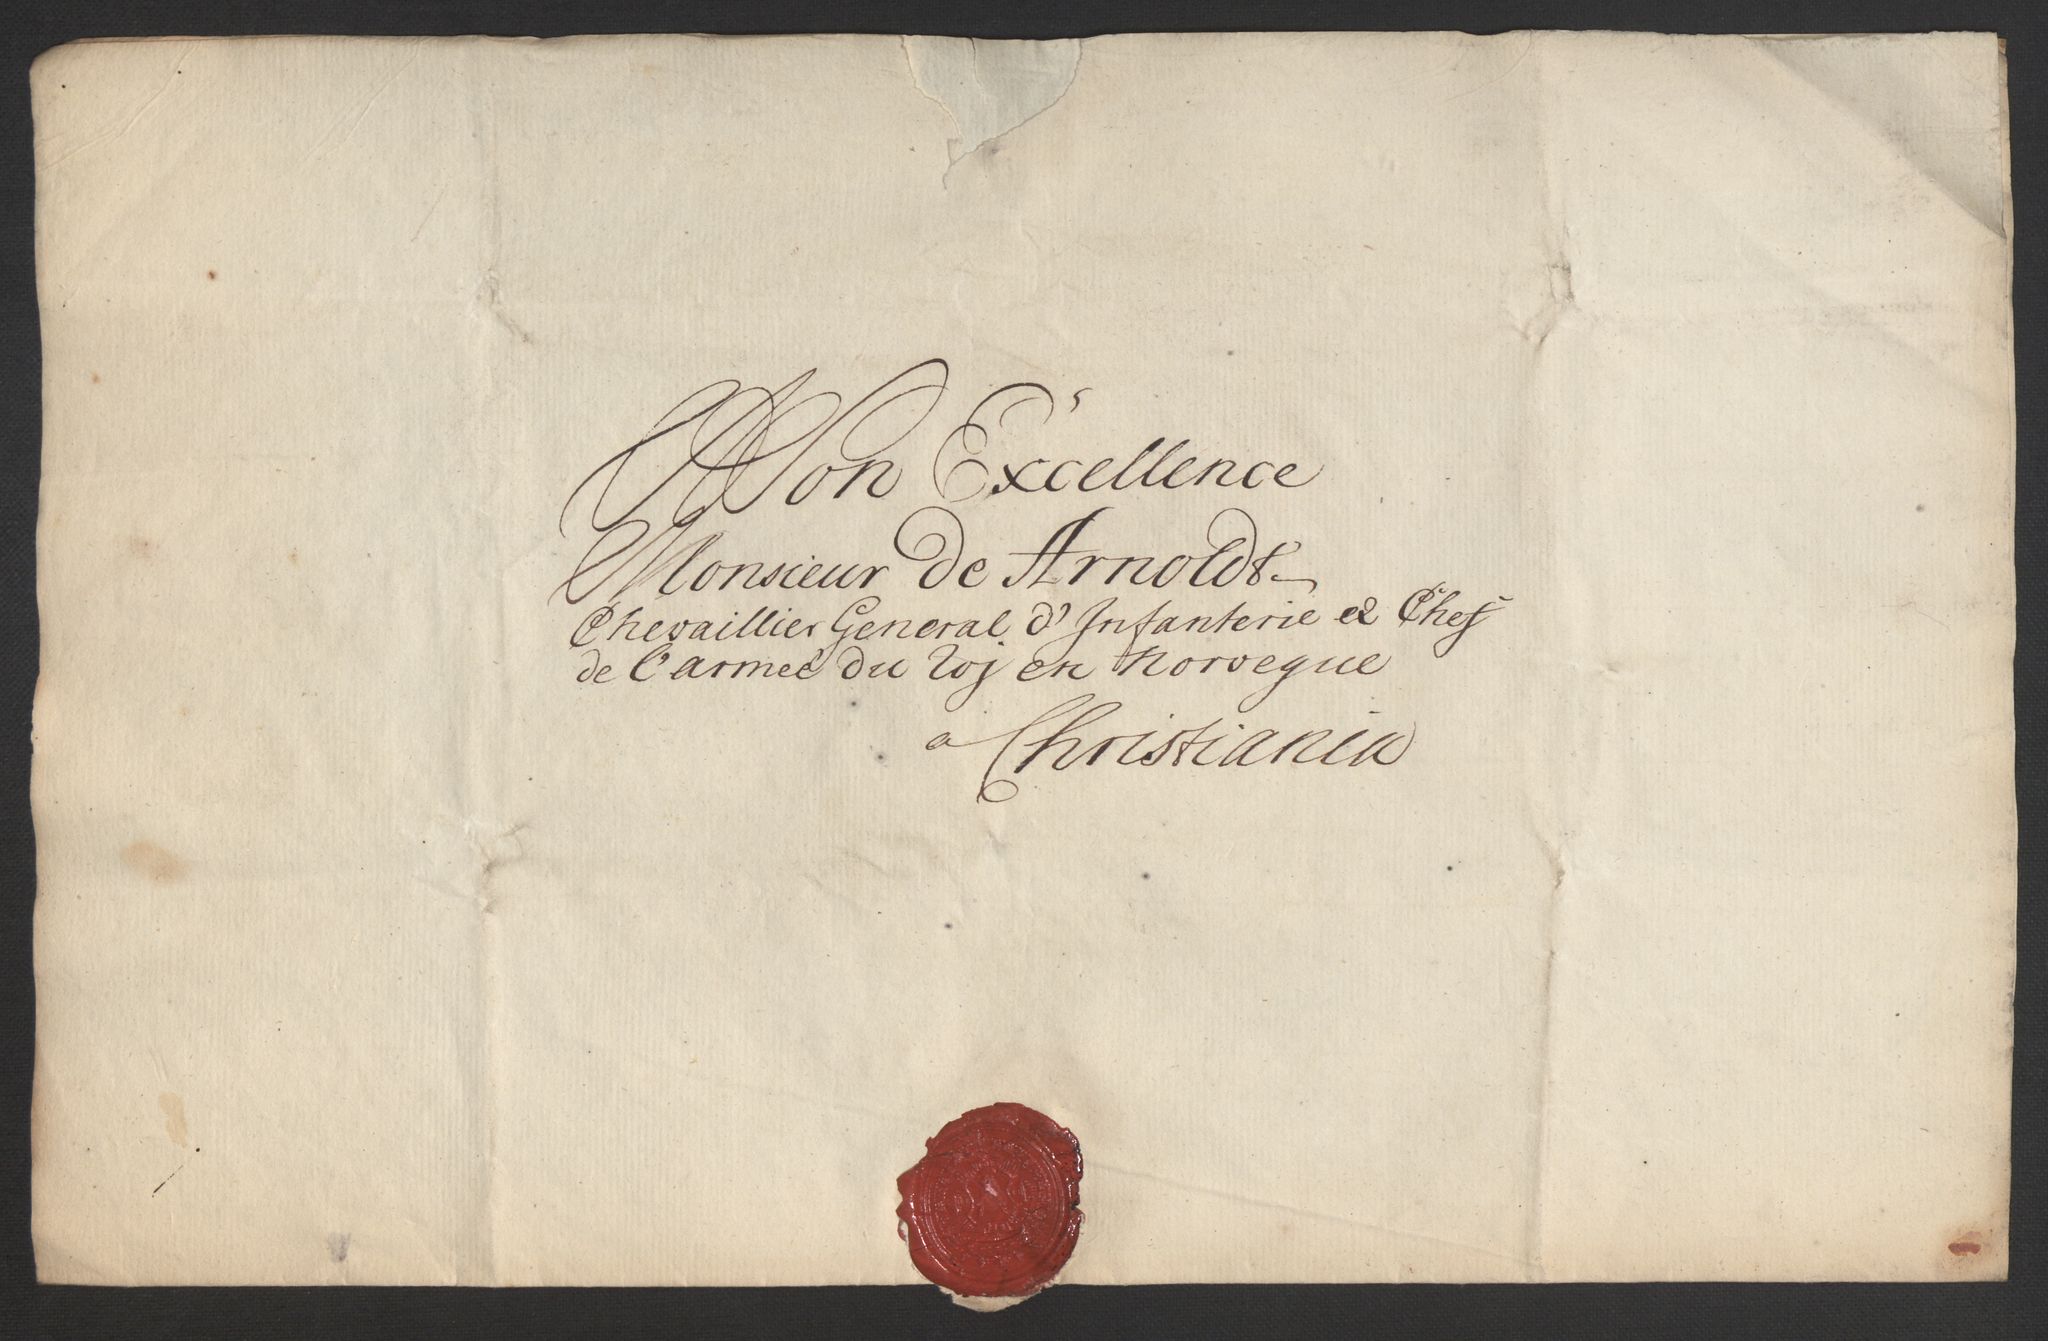 Son Excellence
Monsieur de Arnoldt
Chevaillier General d'Infanterie et Chef
de l'armeé du roj en Norvegue
a Christiania